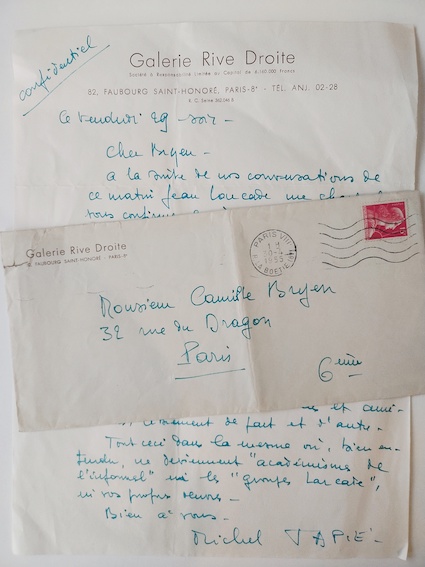 confidentiel
Galerie Rive Droite
Société à Responsabilité Limitée au Capital de 6.100.000 Francs
82, FAUBOURG SAINT-HONORÉ, PARIS-8e - TÉL. ANJ. 02-28
Ce Vendredi 29 - soir -
Cher Bryen -
à la suite de nos conversations de
ce matin Jean Larcade me
vous
Galerie Rive Droite
FAUBOURG SAINT-HONORÉ - PARIS-8e
PARIS VIII
1955
R. LA BOETIE (8e)
Monsieur Camille Bryen
32 rue du Dragon
Paris
6ème
et
de part et d'autre -
Tout ceci dans la mesure où, bien en-
tendu, ne deviennent "académismes de
l'informel" ni les "groupes Larcade",
ni vos propres
Bien à vous -
Michel TAPIÉ -